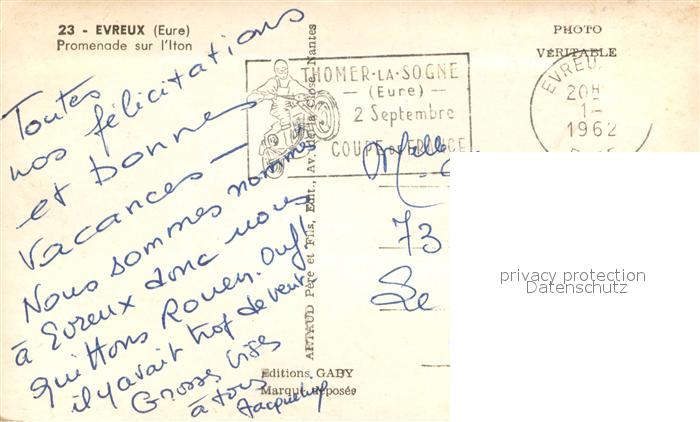 23 - EVREUX (Eure)
Promenade sur l'Iton
PHOTO
VÉRITABLE
THOMER-LA-SOGNE
(Eure)
2 Septembre
COUPE DE FRANCE
EVREUX
20H
1-
1962
Toutes
nos félicitations
et bonnes
vacances -
Nous sommes nommés
à Evreux donc nous
quittons Rouen. Ouf!
il y avait trop de vent.
Grosses bises
à tous
ARTAUD Père et Fils, Edit., Nantes
Editions GABY
Marque déposée
Melle
73
Le
privacy protection
Datenschutz